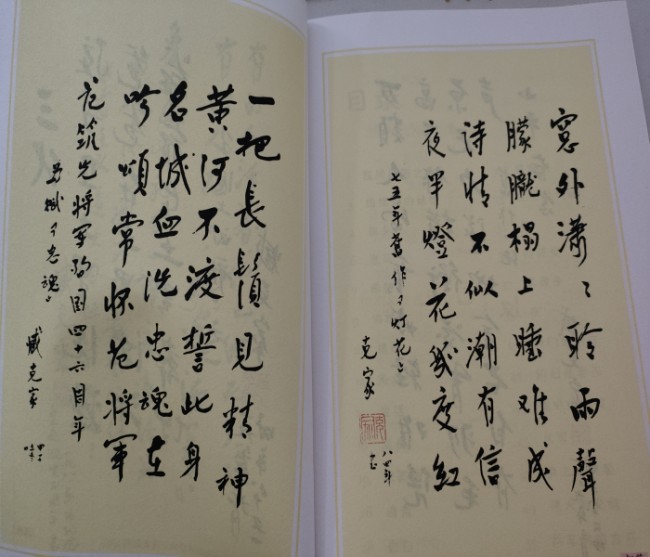 窓外潇〻聆雨聲
朦朧榻上睡难成
诗情不似潮有信
夜半燈花幾度紅
七五年舊作《灯花》
克家
八四年
一把長鬍見精神
黄河不渡誓此身
名城血洗忠魂在
吟頌常怀范将軍
范筑先将军殉国四十六周年
《忠魂》
臧克家